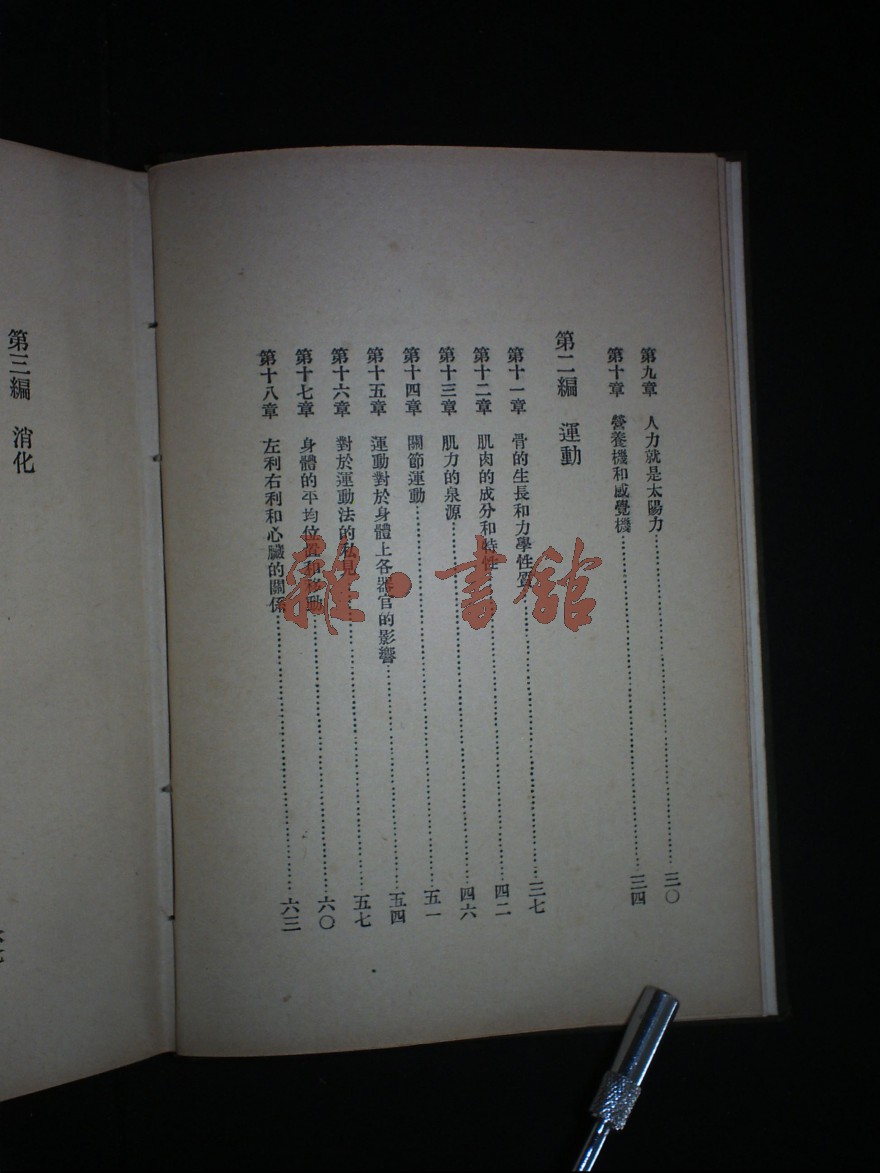 第九章 人力就是太陽力……三〇
第十章 營養機和感覺機……三四
第二編 運動
第十一章 骨的生長和力學性質……三七
第十二章 肌肉的成分和特性……四二
第十三章 肌力的泉源……四六
第十四章 關節運動……五一
第十五章 運動對於身體上各器官的影響……五四
第十六章 對於運動法的私見……五七
第十七章 身體的平均位置和移動……六〇
第十八章 左利右利和心臟的關係……六三
第三編 消化
雜·書館